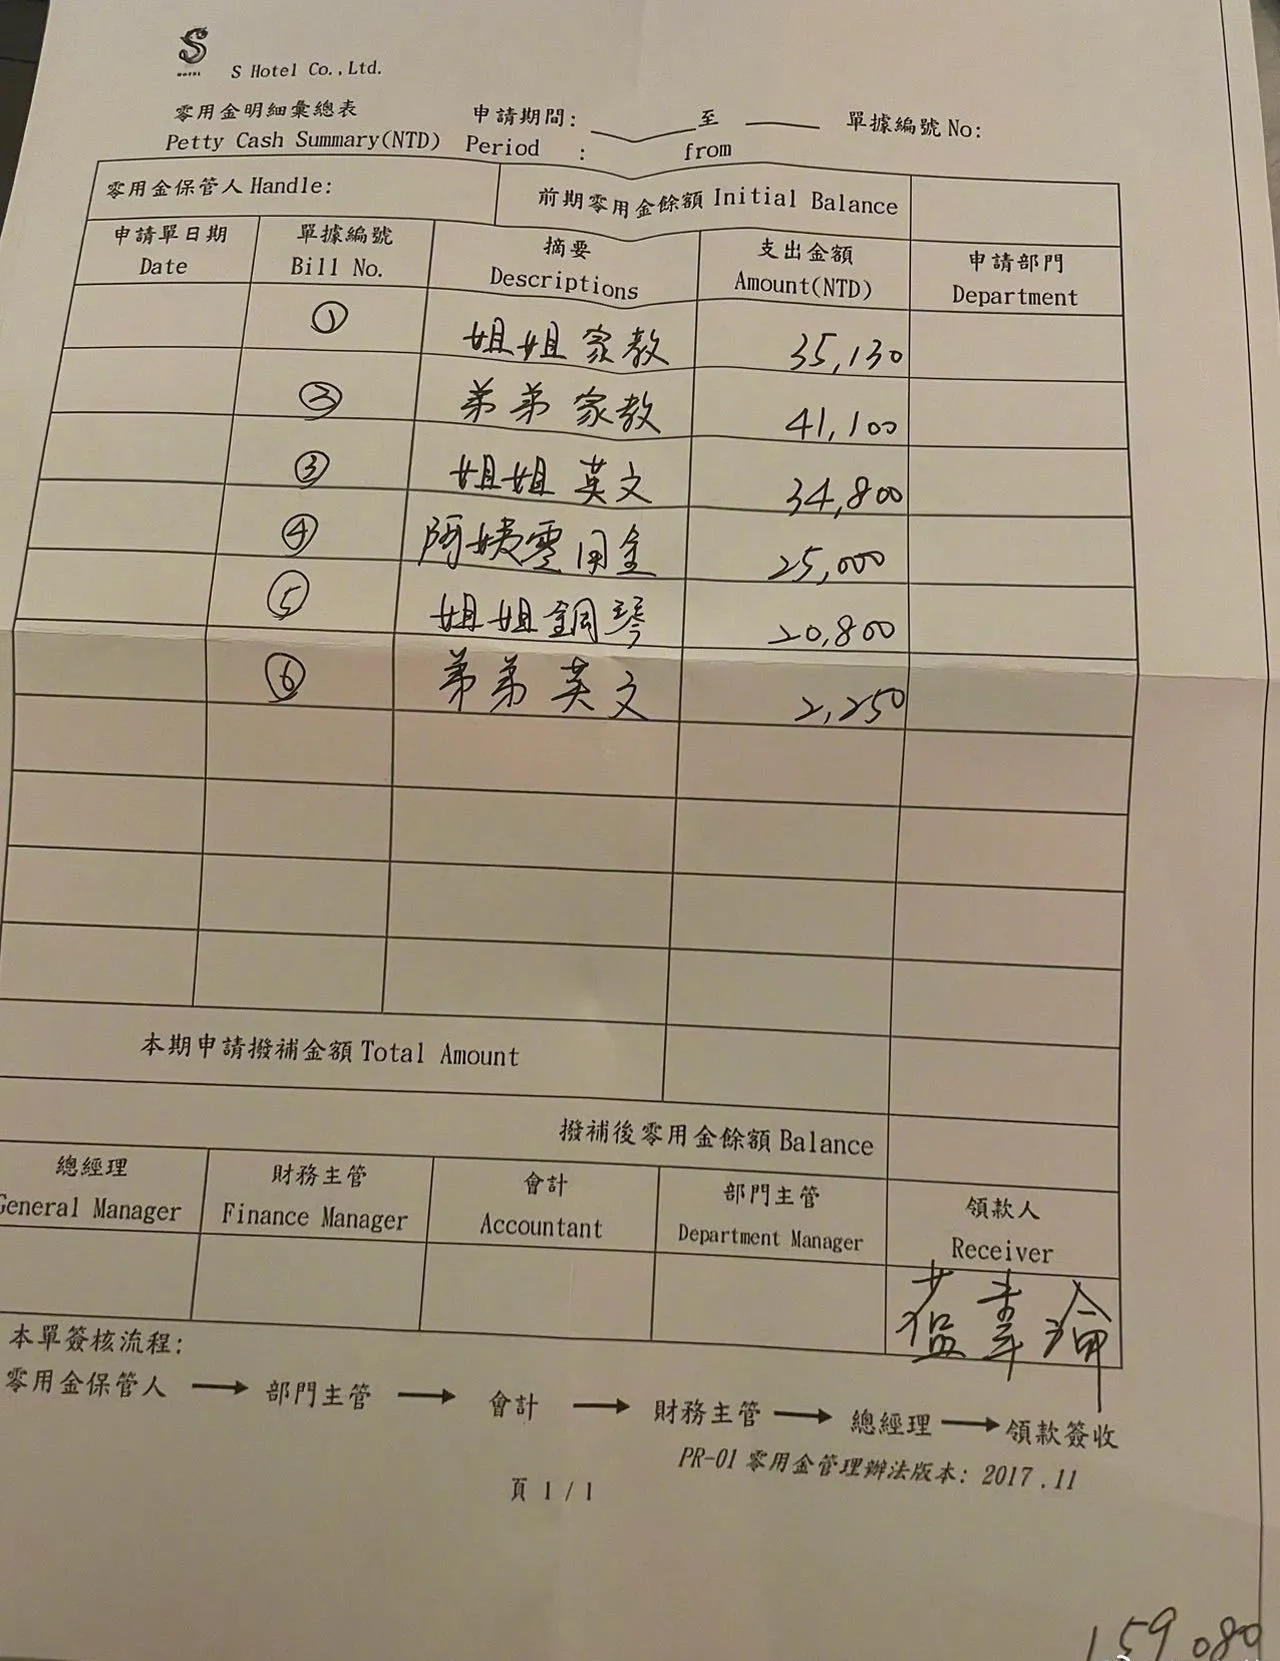 S
HOTEL
S Hotel Co.,Ltd.
零用金明細彙總表 申請期間: 至 單據編號 No:
Petty Cash Summary(NTD) Period : from
零用金保管人 Handle: 前期零用金餘額 Initial Balance
申請單日期 單據編號 摘要 支出金額 申請部門
Date Bill No. Descriptions Amount(NTD) Department
① 姐姐家教 35,130
② 弟弟家教 41,100
③ 姐姐英文 34,800
④ 阿姨零用金 25,000
⑤ 姐姐鋼琴 20,800
⑥ 弟弟英文 2,250
本期申請撥補金額 Total Amount
撥補後零用金餘額 Balance
總經理 財務主管 會計 部門主管 領款人
General Manager Finance Manager Accountant Department Manager Receiver
本單簽核流程:
零用金保管人 → 部門主管 → 會計 → 財務主管 → 總經理 → 領款簽收
PR-01 零用金管理辦法版本: 2017.11
頁 1 / 1
159,080